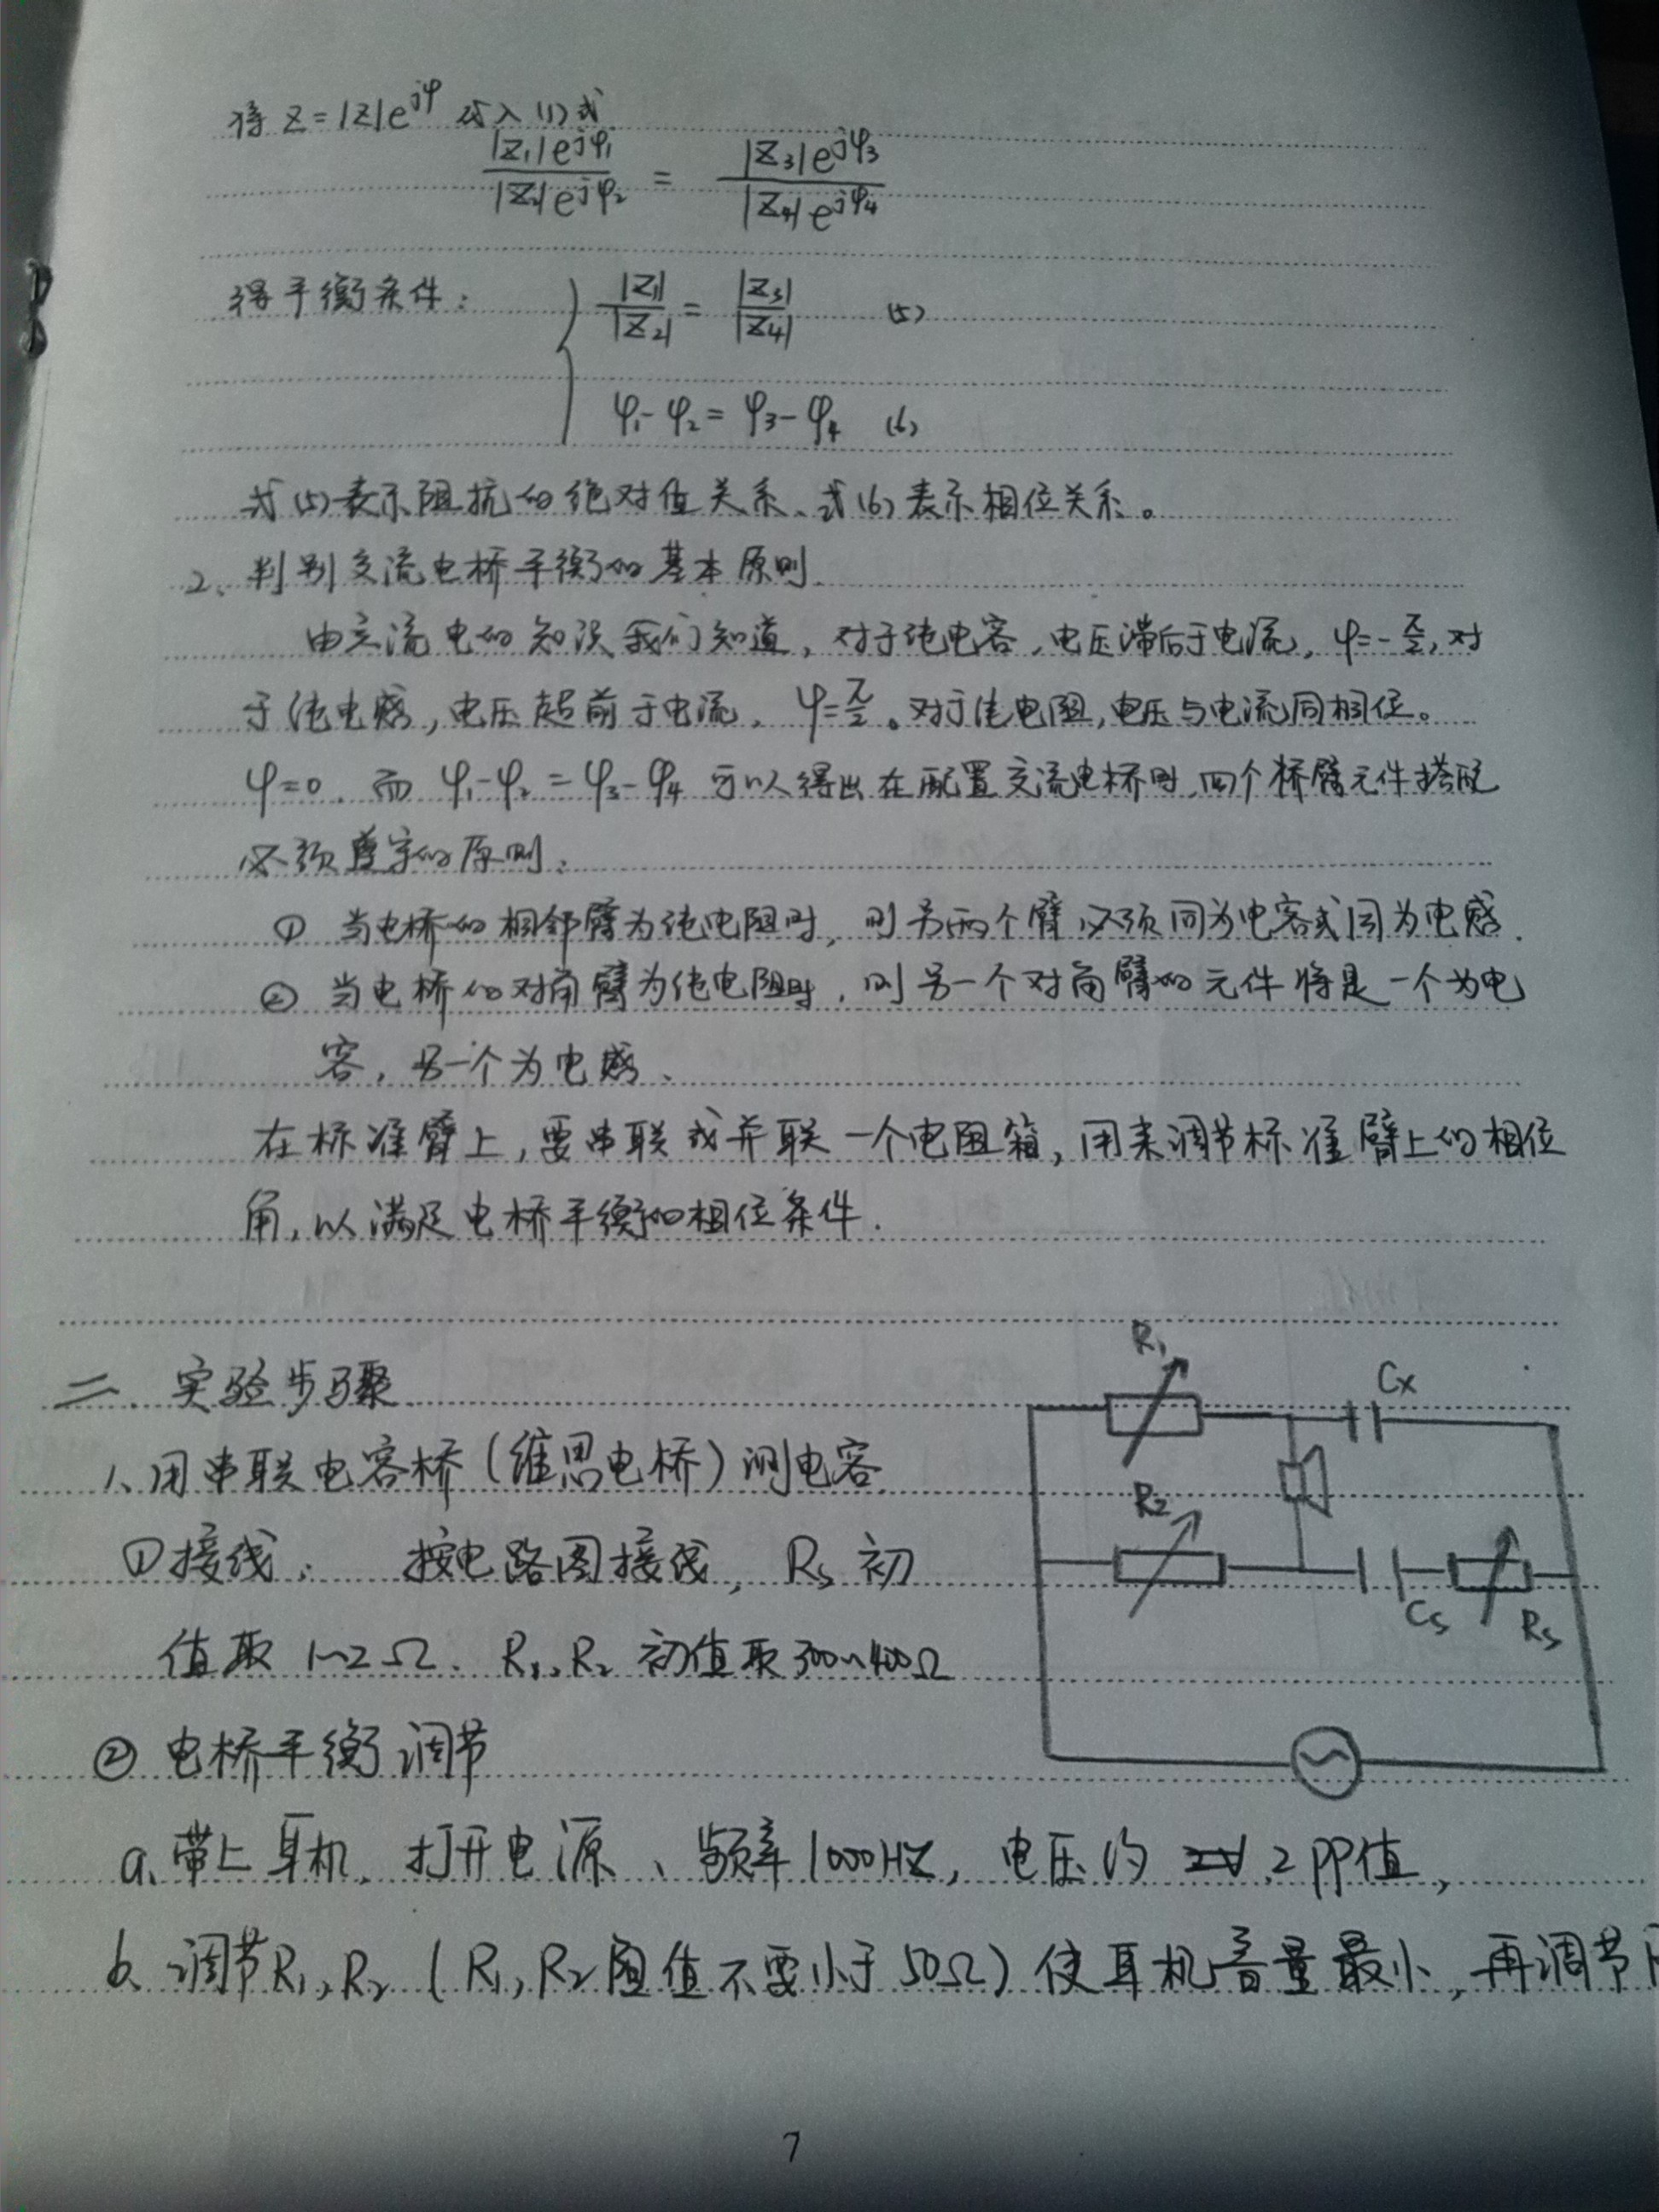 将 Z=|Z|e^{jφ} 代入(1)式
|Z₁|e^{jφ₁} / |Z₂|e^{jφ₂} = |Z₃|e^{jφ₃} / |Z₄|e^{jφ₄}
得平衡条件: |Z₁|/|Z₂| = |Z₃|/|Z₄| (5)
φ₁-φ₂=φ₃-φ₄ (6)
式(5)表示阻抗的绝对值关系、式(6)表示相位关系。
2、判别交流电桥平衡的基本原则.
由交流电的知识我们知道,对于纯电容,电压滞后于电流,φ=-π/2,对
于纯电感,电压超前于电流,φ=π/2。对于纯电阻,电压与电流同相位。
φ=0.而 φ₁-φ₂=φ₃-φ₄ 可以得出在配置交流电桥时,四个桥臂元件搭配
必须遵守的原则:
① 当电桥的相邻臂为纯电阻时,则另两个臂必须同为电容或同为电感.
② 当电桥的对角臂为纯电阻时,则另一个对角臂的元件将是一个为电
容,另一个为电感、
在标准臂上,要串联或并联一个电阻箱,用来调节标准臂上的相位
角,以满足电桥平衡的相位条件.
二.实验步骤
1、用串联电容桥(维思电桥)测电容
①接线: 按电路图接线, Rs 初
值取 1~2Ω、R₁,R₂ 初值取300~400Ω
R₁
Cx
R₂
Cs
Rs
② 电桥平衡调节
a.带上耳机、打开电源、频率1000HZ,电压约 2PP值,
b.调节R₁,R₂(R₁,R₂阻值不要小于50Ω)使耳机音量最小,再调节
7